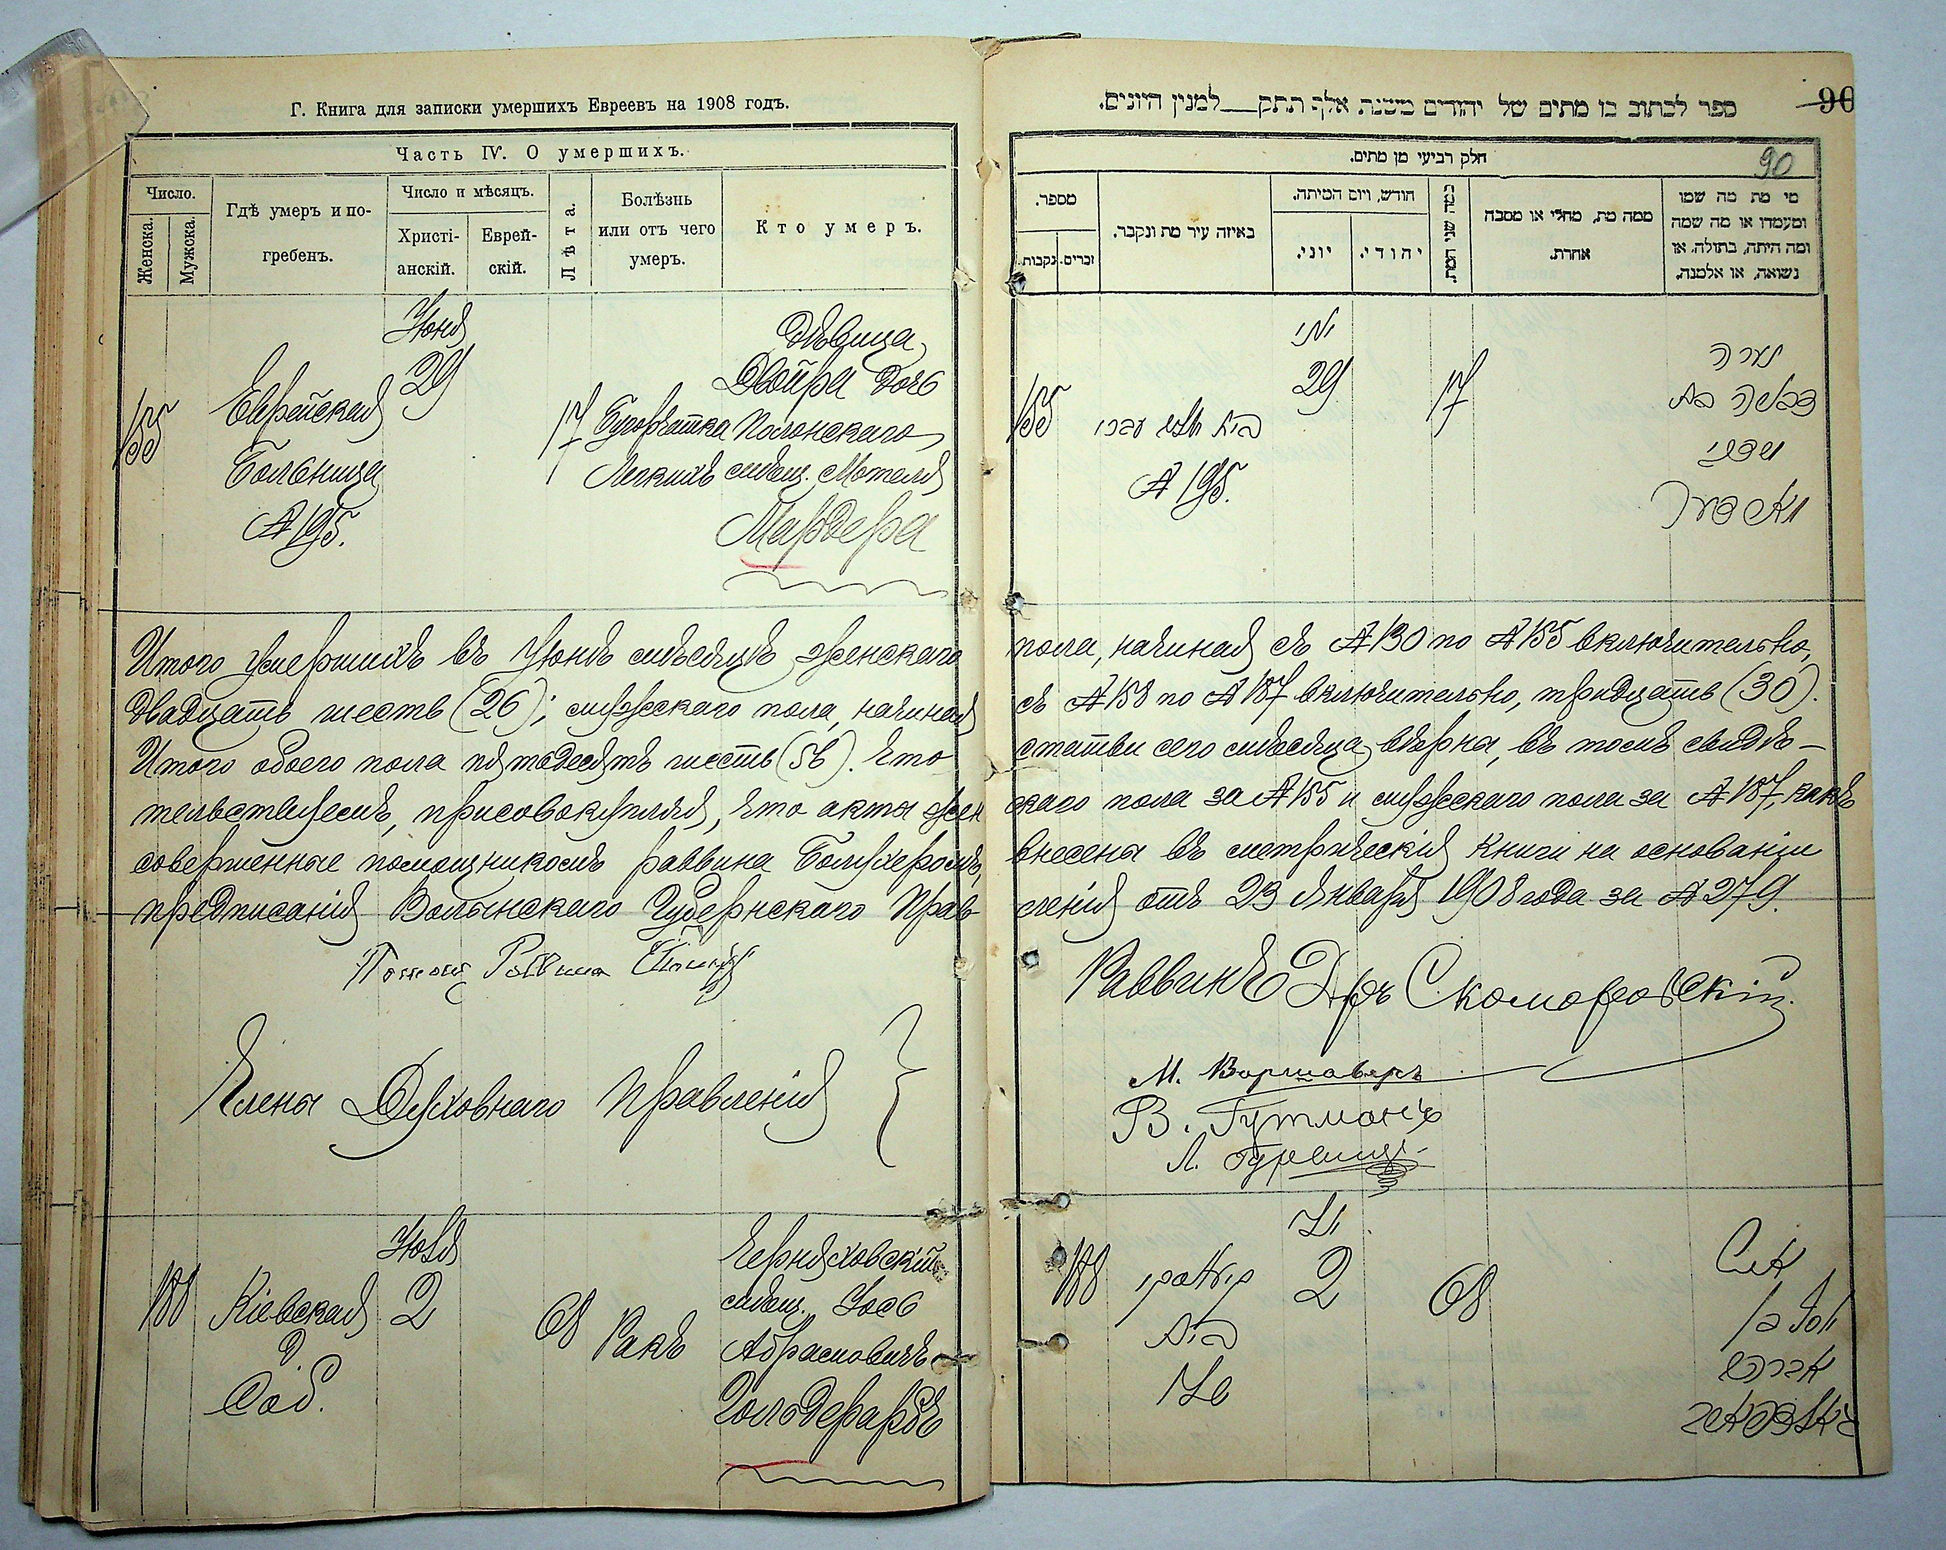 Г. Книга для записки умершихъ Евреевъ на 1908 годъ.
Часть IV. О умершихъ.
Число.
Женска.
Мужска.
Гдѣ умеръ и по-
гребенъ.
Число и мѣсяцъ.
Христі-
анскій.
Еврей-
скій.
Лѣта.
Болѣзнь
или отъ чего
умеръ.
Кто умеръ.
Іюня
155
Еврейская
Больница
№ 195.
29
17
Бугорчатка
Легкихъ
Дѣвица
Двойра дочь
Полонскаго
мѣщ. Мотеля
Мардера
Итого умершихъ въ Іюнѣ мѣсяцѣ женскаго
двадцать шесть (26); мужскаго пола, начиная
Итого обоего пола пятьдесятъ шесть (56). Что
тельствуемъ, присовокупляя, что акты жен
совершенные помощникомъ раввина
предписанія Волынскаго Губернскаго Прав-
Помощ Раввина
Члены Духовнаго Правленія
Іюля
188
Кіевская
д.
Соб.
2
68
Ракъ
Черняховскій
мѣщ. Іось
Абрамовичъ
Гольдефарбъ
ספר לכתוב בו מתים של יהודים משנת אלף תתק__למנין היונים.
90
חלק רביעי מן מתים.
90
מספר.
נקבות.
זכרים.
באיזה עיר מת ונקבר.
חודש, ויום המיתה.
יוני.
יהודי.
כמה שני המת.
ממה מת, מחלי או מסבה
אחרת.
מי מת מה שמו
ומעמדו או מה שמה
ומה היתה, בתולה, או
נשואה, או אלמנה.
יוני
155
בית חולים עברי
№ 195.
29
17
נערה
בת
пола, начиная съ № 130 по № 155 включительно,
съ № 158 по № 187 включительно, тридцать (30).
статьи сего мѣсяца вѣрны, въ томъ свидѣ-
скаго пола за № 155 и мужскаго пола за № 187, какъ
внесены въ метрическія книги на основаніи
ленія отъ 23 Января 1908 года за № 279.
Раввинъ Д-ръ Скоморовскій.
М. Варшаверъ
В. Гутманъ
Л. Гурвицъ
יולי
188
בית
שלו
2
68
איש
יוסף בן
אברהם
גאלדפארב